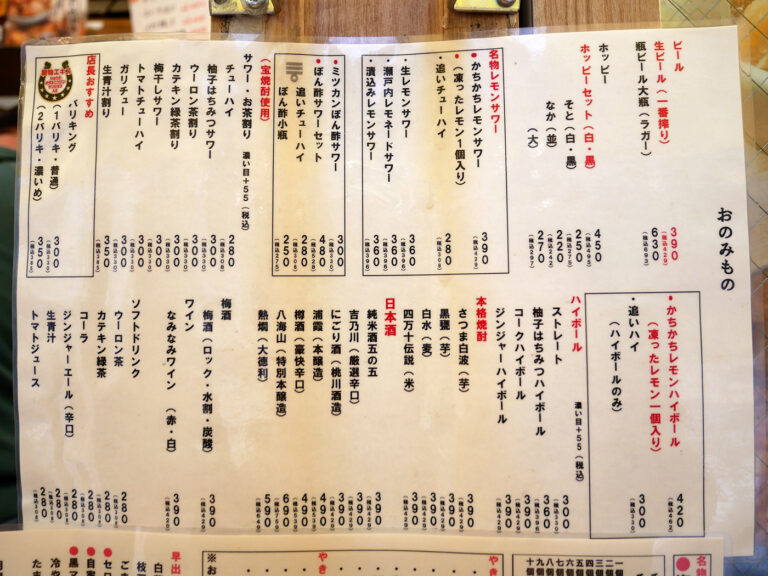 おのみもの
ビール
生ビール（一番搾り）
390
（税込429）
瓶ビール大瓶（ラガー）
630
（税込693）
ホッピー
ホッピーセット（白・黒）
450
（税込495）
そと（白・黒）
250
（税込275）
なか（並）
220
（税込242）
（大）
270
（税込297）
名物レモンサワー
・かちかちレモンサワー
（凍ったレモン1個入り）
390
（税込429）
・追いチューハイ
280
（税込308）
・生レモンサワー
360
（税込396）
・瀬戸内レモネードサワー
360
（税込396）
・漬込みレモンサワー
360
（税込396）
・ミツカンぽん酢サワー
300
（税込330）
・ぽん酢サワーセット
480
（税込528）
追いチューハイ
280
（税込308）
ぽん酢小瓶
250
（税込275）
（宝焼酎使用）
サワー・お茶割り
濃い目+55（税込）
チューハイ
280
（税込308）
柚子はちみつサワー
300
（税込330）
ウーロン茶割り
300
（税込330）
カテキン緑茶割り
300
（税込330）
梅干しサワー
300
（税込330）
トマトチューハイ
300
（税込330）
ガリチュー
300
（税込330）
生青汁割り
350
（税込385）
店長おすすめ
バリキング
（1バリキ・普通）
300
（税込330）
（2バリキ・濃いめ）
350
（税込385）
・かちかちレモンハイボール
（凍ったレモン一個入り）
420
（税込462）
・追いハイ
（ハイボールのみ）
300
（税込330）
ハイボール
濃い目+55（税込）
ストレート
300
（税込330）
柚子はちみつハイボール
360
（税込396）
コークハイボール
390
（税込429）
ジンジャーハイボール
390
（税込429）
本格焼酎
さつま白波（芋）
390
（税込429）
黒甕（芋）
390
（税込429）
白水（麦）
390
（税込429）
四万十伝説（米）
390
（税込429）
日本酒
純米酒五の五
390
（税込429）
吉乃川（厳選辛口）
390
（税込429）
にごり酒（桃川酒造）
390
（税込429）
浦霞（本醸造）
490
（税込539）
樽酒（豪快辛口）
490
（税込539）
八海山（特別本醸造）
690
（税込759）
熱燗（大徳利）
590
（税込649）
梅酒
梅酒（ロック・水割・炭酸）
390
（税込429）
ワイン
なみなみワイン（赤・白）
390
（税込429）
ソフトドリンク
ウーロン茶
280
（税込308）
カテキン緑茶
280
（税込308）
コーラ
280
（税込308）
ジンジャーエール（辛口）
280
（税込308）
生青汁
280
（税込308）
トマトジュース
280
（税込308）
名物
一個
二個
三個
四個
五個
六個
七個
八個
九個
十個
やき
やき
※お
早出
白
枝
ごま
・セロ
・自家
・黒マ
冷や
たま